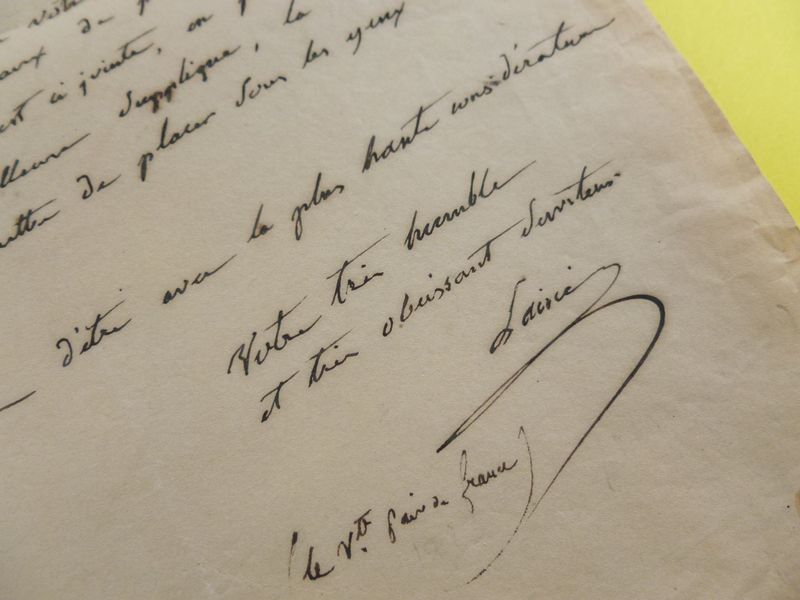 votre
de
est ci jointe, on
supplique, la
de placer sous les yeux
d'être avec la plus haute considération
Votre très humble
et très obéissant serviteur.
Lainé
(le Vte. pair de france)